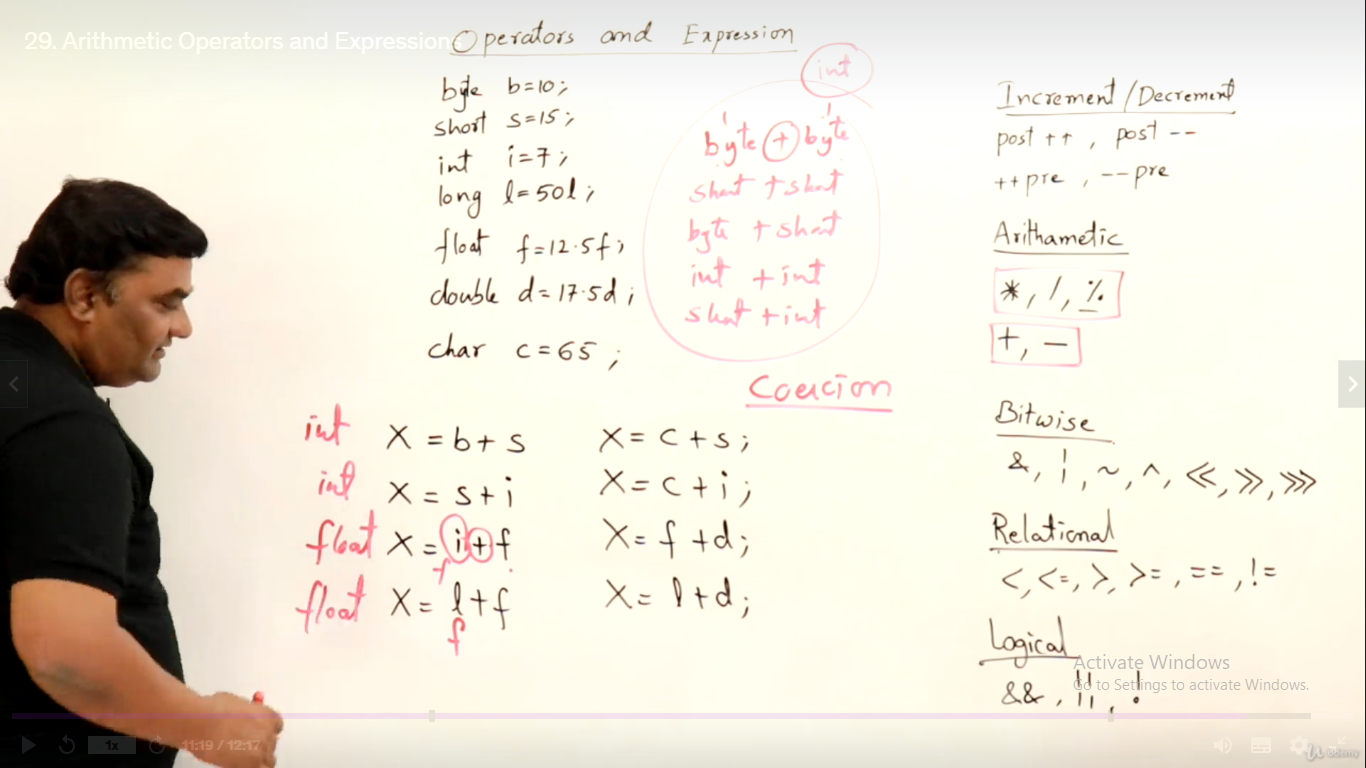 29. Arithmetic Operators and Expressions
Operators and Expression
byte b=10;
short s=15;
int i=7;
long l=50l;
float f=12.5f;
double d=17.5d;
char c=65;
int
byte + byte
short + short
byte + short
int + int
short + int
Coercion
int X = b + s
int X = s + i
float X = i + f
f
float X = l + f
f
X = c + s;
X = c + i;
X = f + d;
X = l + d;
Increment/Decrement
post ++ , post --
++pre , --pre
Arithametic
*, /, %
+, -
Bitwise
&, |, ~, ^, <<, >>, >>>
Relational
<, <=, >, >=, ==, !=
Logical
&&, ||, !
Activate Windows
Go to Settings to activate Windows.
1x
11:19 / 12:17
Udemy